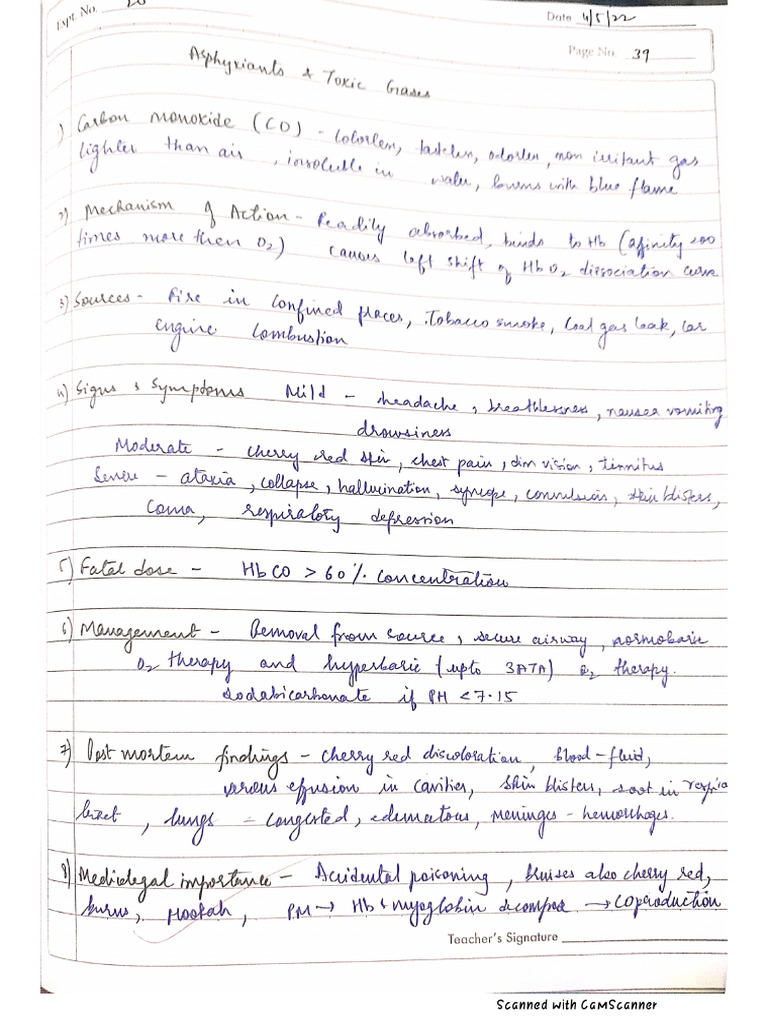 Expt. No. 20
Date 4/5/22
Page No. 39
Asphyxiants & Toxic Gases
1) Carbon Monoxide (CO) - Colorless, tasteless, odorless, non irritant gas
lighter than air, insoluble in water, burns with blue flame
2) Mechanism of Action - Readily absorbed, binds to Hb (affinity 200
times more then O2) causes left shift of HbO2 dissociation curve
3) Sources - Fire in confined places, Tobacco smoke, Coal gas leak, car
engine combustion
4) Signs & Symptoms Mild - headache, breathlessness, nausea vomiting
drowsiness
Moderate - cherry red skin, chest pain, dim vision, tinnitus
Severe - ataxia, collapse, hallucination, syncope, convulsions, skin blisters,
Coma, respiratory depression
5) Fatal dose - HbCO > 60% concentration
6) Management - Removal from source, secure airway, normobaric
O2 therapy and hyperbaric (upto 3ATA) O2 therapy.
sodabicarbonate if PH < 7.15
7) Post mortem findings - cherry red discoloration, blood - fluid,
serous effusion in cavities, skin blisters, soot in respira
tract, lungs - congested, edematous, meninges - hemorrhages.
8) Mediolegal importance - Accidental poisoning, bruises also cherry red,
burns, Hookah, PM → Hb + myoglobin decompose → CO production
Teacher's Signature
Scanned with CamScanner